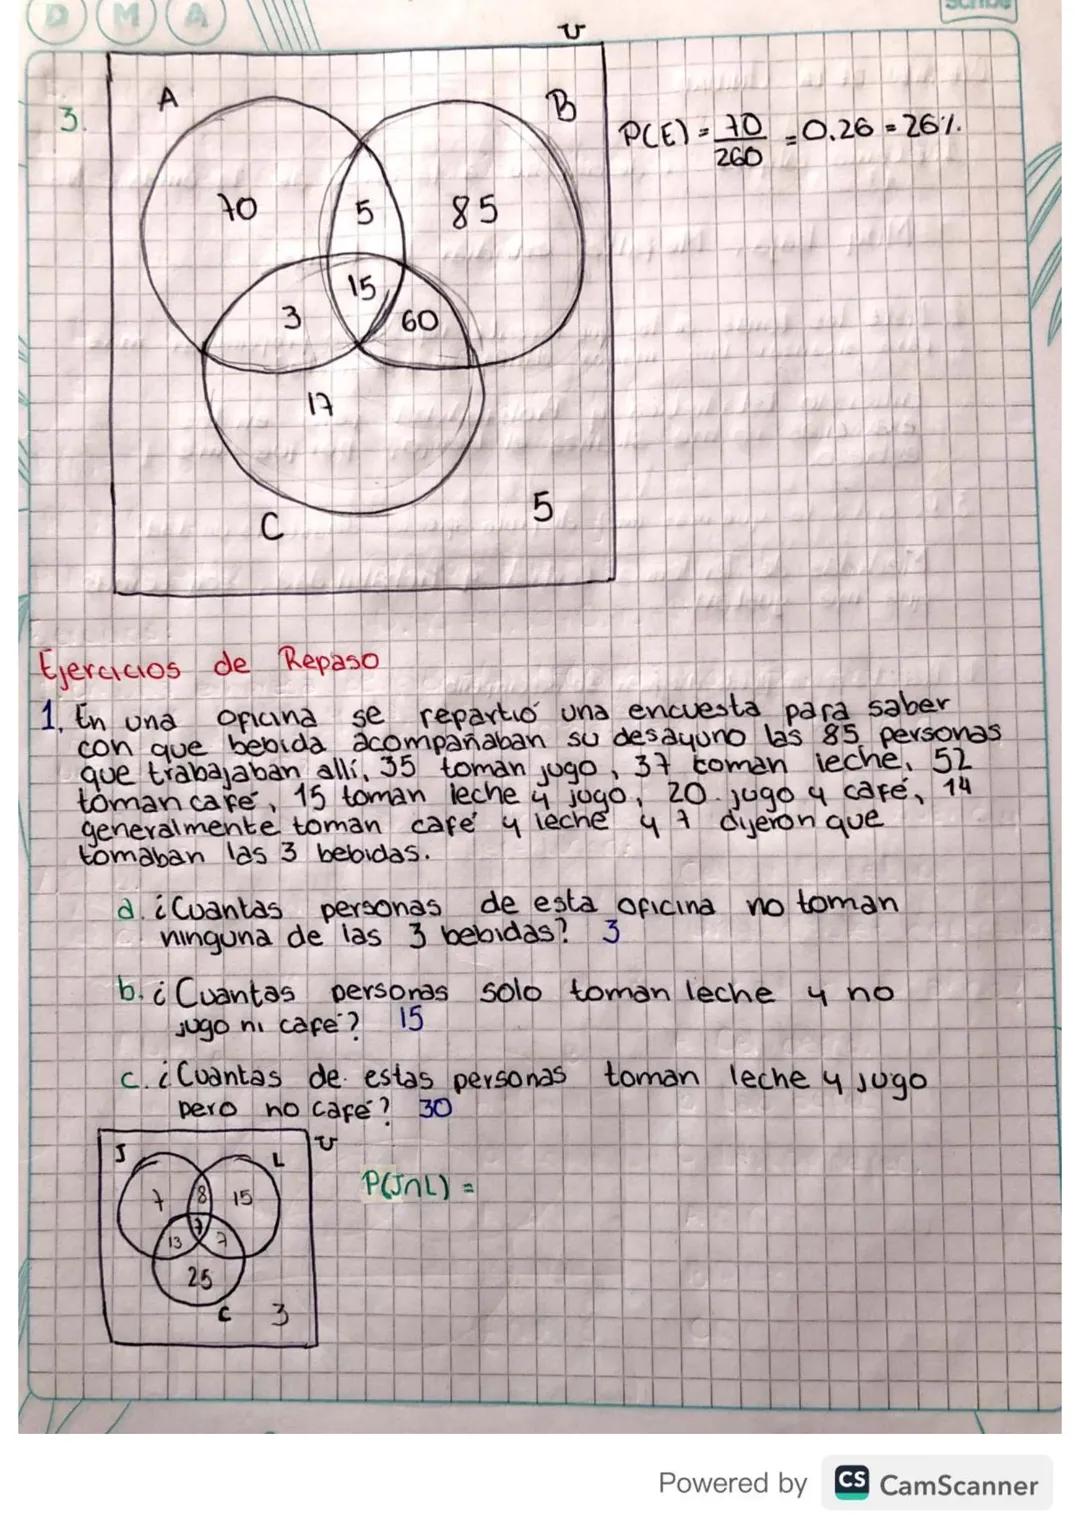 D M A
Scribe
U
3.
A
B
P(E) = 70/260 = 0.26 = 26%.
70
5
85
15
3
60
17
C
5
Ejercicios de Repaso
1. En una oficina se repartió una encuesta para saber
con que bebida acompañaban su desayuno las 85 personas
que trabajaban allí, 35 toman jugo, 37 toman leche, 52
toman café, 15 toman leche y jugo, 20 jugo y café, 14
generalmente toman café y leche y 7 dijeron que
tomaban las 3 bebidas.
a. ¿Cuantas personas de esta oficina no toman
ninguna de las 3 bebidas? 3
b. ¿Cuantas personas solo toman leche y no
jugo ni café? 15
c. ¿Cuantas de estas personas toman leche y jugo
pero no café? 30
U
J
L
P(J∩L) =
7
8
15
7
13
7
25
C
3
Powered by CS CamScanner